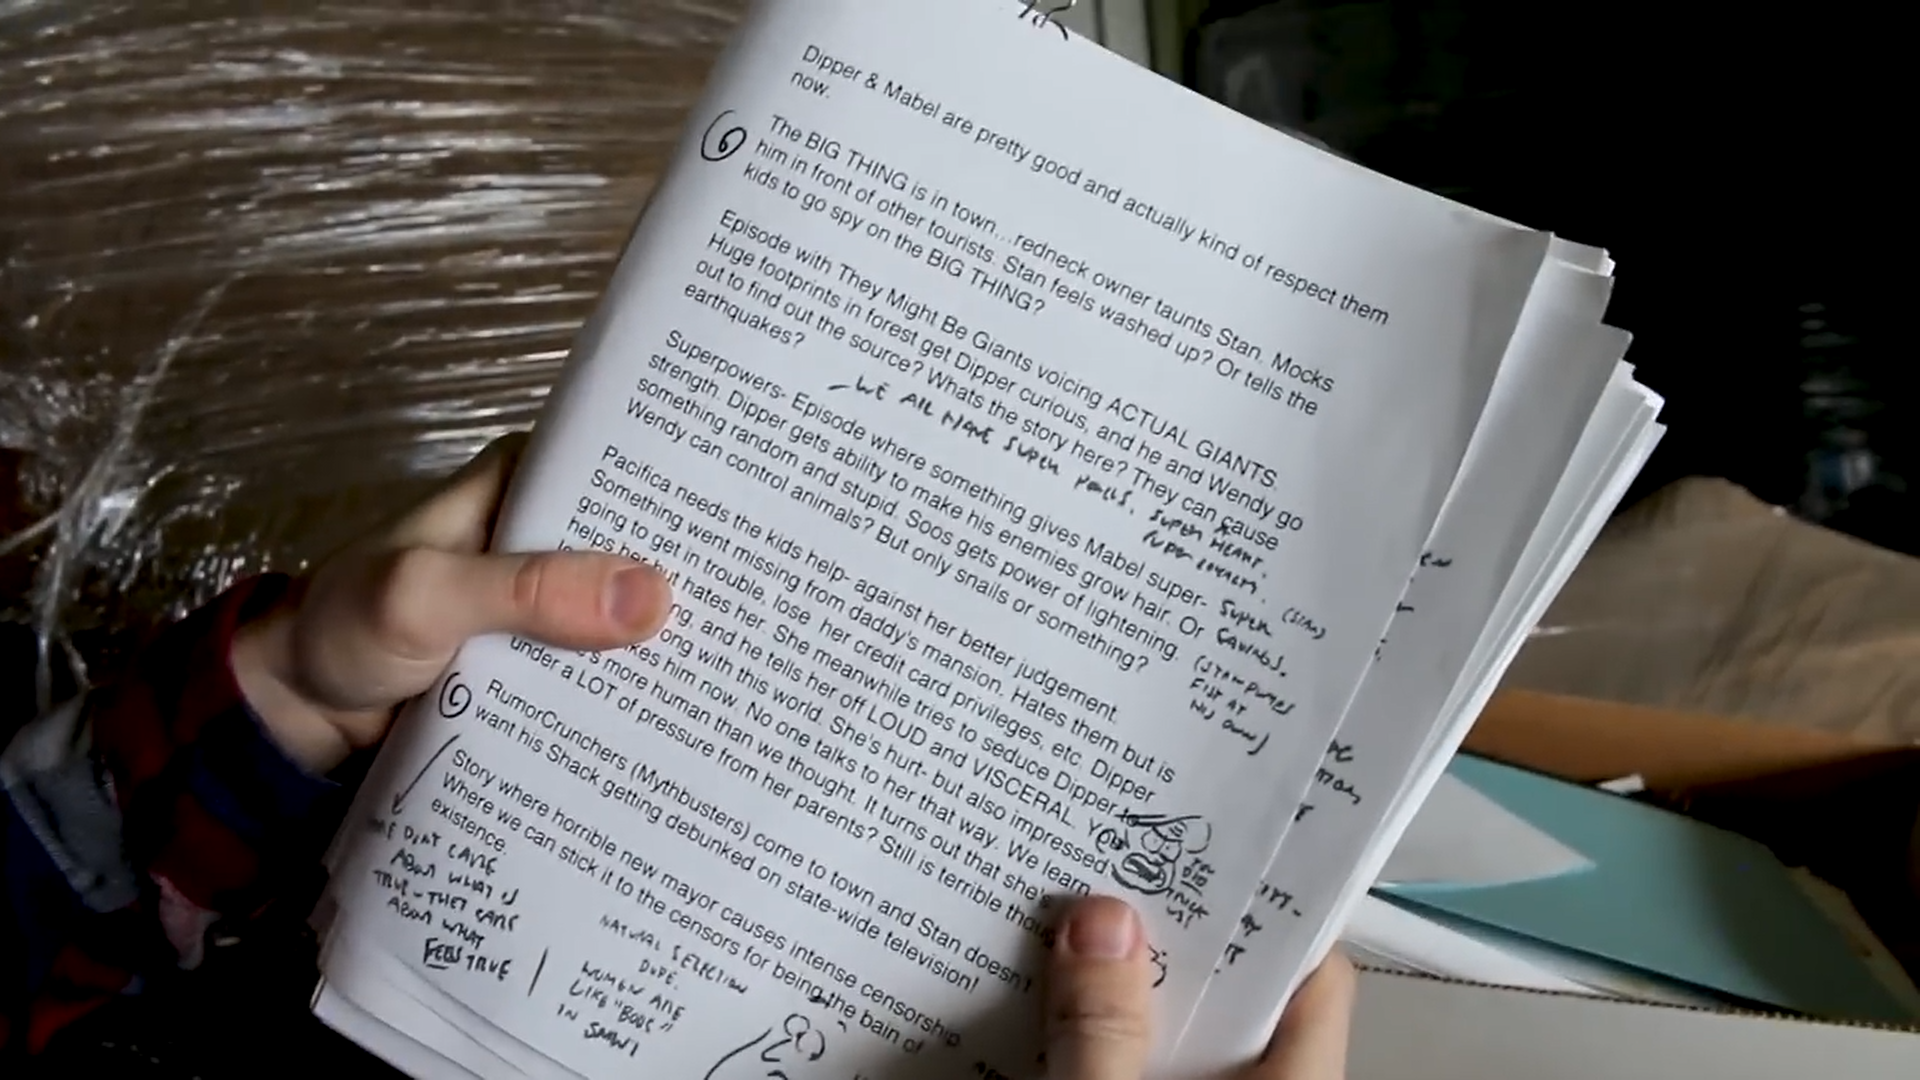 Dipper & Mabel are pretty good and actually kind of respect them
now.
6
The BIG THING is in town...redneck owner taunts Stan. Mocks
him in front of other tourists. Stan feels washed up? Or tells the
kids to go spy on the BIG THING?
Episode with They Might Be Giants voicing ACTUAL GIANTS.
Huge footprints in forest get Dipper curious, and he and Wendy go
out to find out the source? Whats the story here? They can cause
earthquakes?
- WE ALL HAVE SUPER
SUPER HEART.
SUPER LOYALTY.
Superpowers- Episode where something gives Mabel super-
strength. Dipper gets ability to make his enemies grow hair. Or
something random and stupid. Soos gets power of lightening.
Wendy can control animals? But only snails or something?
SUPER (STAN)
SAVINGS.
FIST AT
HIS OWN)
Pacifica needs the kids help- against her better judgement.
Something went missing from daddy's mansion. Hates them but is
going to get in trouble, lose her credit card privileges, etc. Dipper
helps her but hates her. She meanwhile tries to seduce Dipper to
and he tells her off LOUD and VISCERAL. You
with this world. She's hurt- but also impressed
him now. No one talks to her that way. We learn
more human than we thought. It turns out that she's
under a LOT of pressure from her parents? Still is terrible though
YOU
DID
THIS
C
RumorCrunchers (Mythbusters) come to town and Stan doesn't
want his Shack getting debunked on state-wide television!
Story where horrible new mayor causes intense censorship.
Where we can stick it to the censors for being the bain of
existence.
DON'T CARE
ABOUT WHAT IS
TRUE - THEY CARE
ABOUT WHAT
FEELS TRUE
NATURAL SELECTION
DUDE.
WOMEN ARE
LIKE "BOOS"
IN